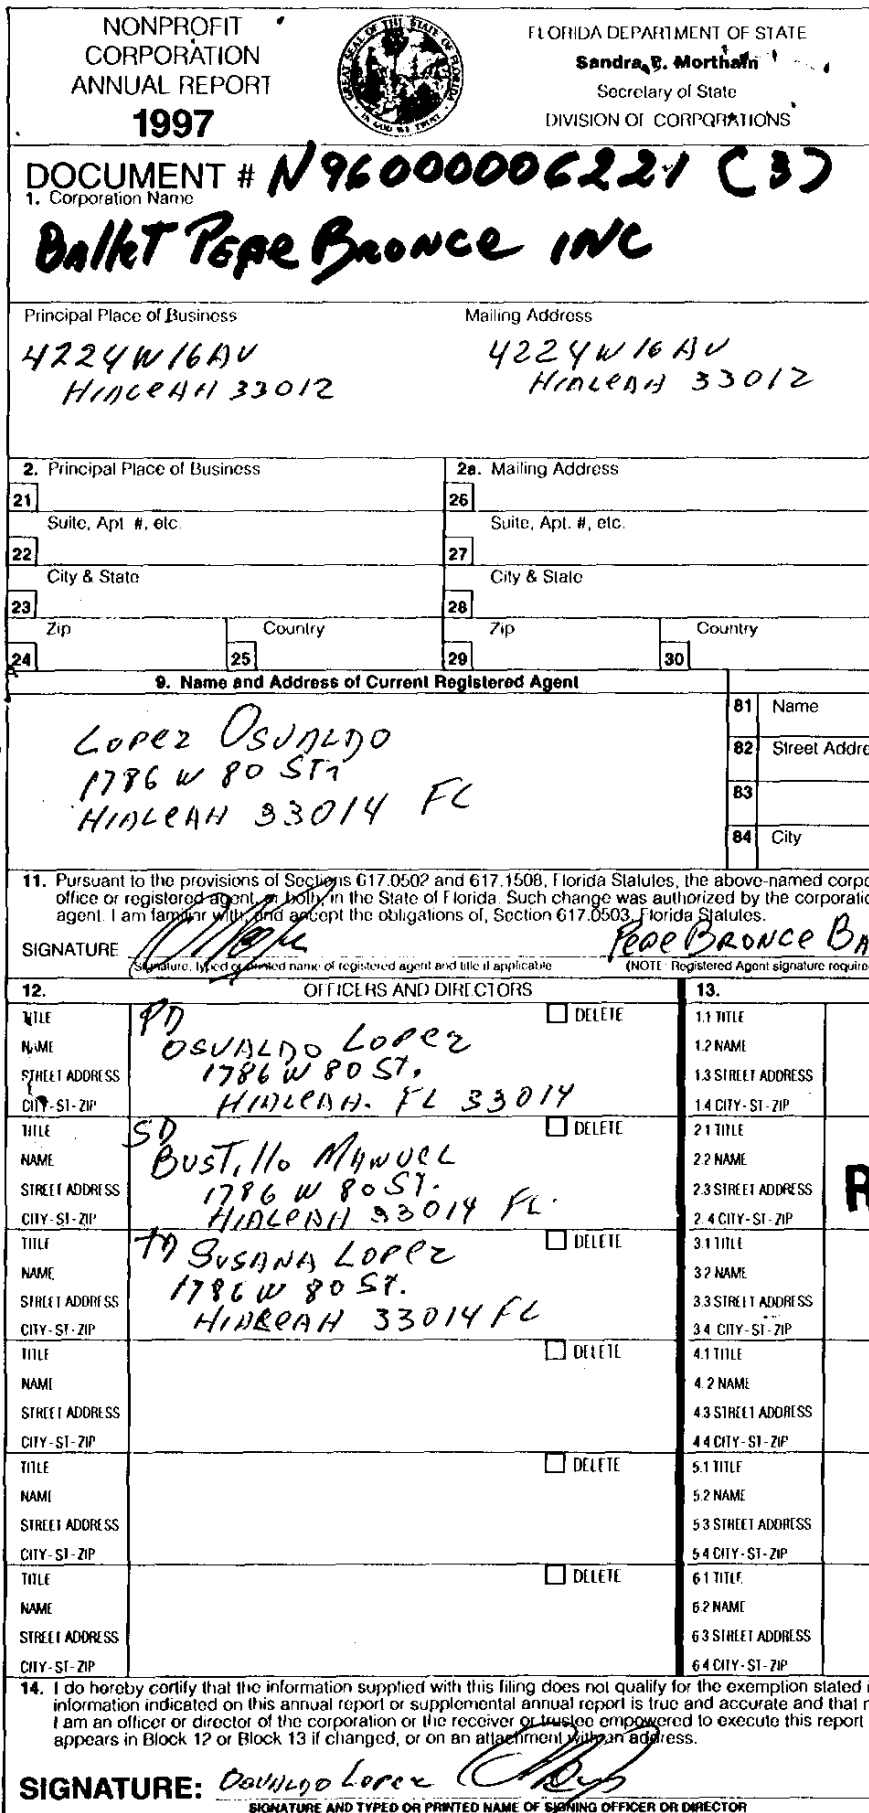 NONPROFIT
CORPORATION
ANNUAL REPORT
1997
GREAT SEAL OF THE STATE OF FLORIDA
IN GOD WE TRUST
FLORIDA DEPARTMENT OF STATE
Sandra B. Mortham
Secretary of State
DIVISION OF CORPORATIONS
DOCUMENT # N96000006221 (3)
1. Corporation Name
Ballet Pepe Bronce INC
Principal Place of Business
4224 W 16 AV
HIALEAH 33012
Mailing Address
4224 W 16 AV
HIALEAH 33012
2. Principal Place of Business
2a. Mailing Address
21
26
Suite, Apt. #, etc.
Suite, Apt. #, etc.
22
27
City & State
City & State
23
28
Zip
Country
Zip
Country
24
25
29
30
9. Name and Address of Current Registered Agent
Lopez Osvaldo
1786 W 80 ST
HIALEAH 33014 FL
81 Name
82 Street Addre
83
84 City
11. Pursuant to the provisions of Sections 617.0502 and 617.1508, Florida Statutes, the above-named corpo
office or registered agent, or both, in the State of Florida. Such change was authorized by the corporatio
agent. I am familiar with, and accept the obligations of, Section 617.0503, Florida Statutes.
SIGNATURE
PEPE BRONCE BA
Signature, typed or printed name of registered agent and title if applicable
(NOTE: Registered Agent signature require
12. OFFICERS AND DIRECTORS
13.
TITLE PD DELETE
NAME OSVALDO LOPEZ
STREET ADDRESS 1786 W 80 ST.
CITY-ST-ZIP HIALEAH. FL 33014
1.1 TITLE
1.2 NAME
1.3 STREET ADDRESS
1.4 CITY-ST-ZIP
TITLE SD DELETE
NAME BUSTillo MANUEL
STREET ADDRESS 1786 W 80 ST.
CITY-ST-ZIP HIALEAH 33014 FL.
2.1 TITLE
2.2 NAME
2.3 STREET ADDRESS
2.4 CITY-ST-ZIP
R
TITLE TD DELETE
NAME SUSANA LOPEZ
STREET ADDRESS 1786 W 80 ST.
CITY-ST-ZIP HIALEAH 33014 FL
3.1 TITLE
3.2 NAME
3.3 STREET ADDRESS
3.4 CITY-ST-ZIP
TITLE DELETE
NAME
STREET ADDRESS
CITY-ST-ZIP
4.1 TITLE
4.2 NAME
4.3 STREET ADDRESS
4.4 CITY-ST-ZIP
TITLE DELETE
NAME
STREET ADDRESS
CITY-ST-ZIP
5.1 TITLE
5.2 NAME
5.3 STREET ADDRESS
5.4 CITY-ST-ZIP
TITLE DELETE
NAME
STREET ADDRESS
CITY-ST-ZIP
6.1 TITLE
6.2 NAME
6.3 STREET ADDRESS
6.4 CITY-ST-ZIP
14. I do hereby certify that the information supplied with this filing does not qualify for the exemption stated i
information indicated on this annual report or supplemental annual report is true and accurate and that m
I am an officer or director of the corporation or the receiver or trustee empowered to execute this report
appears in Block 12 or Block 13 if changed, or on an attachment with an address.
SIGNATURE: Osvaldo Lopez
SIGNATURE AND TYPED OR PRINTED NAME OF SIGNING OFFICER OR DIRECTOR